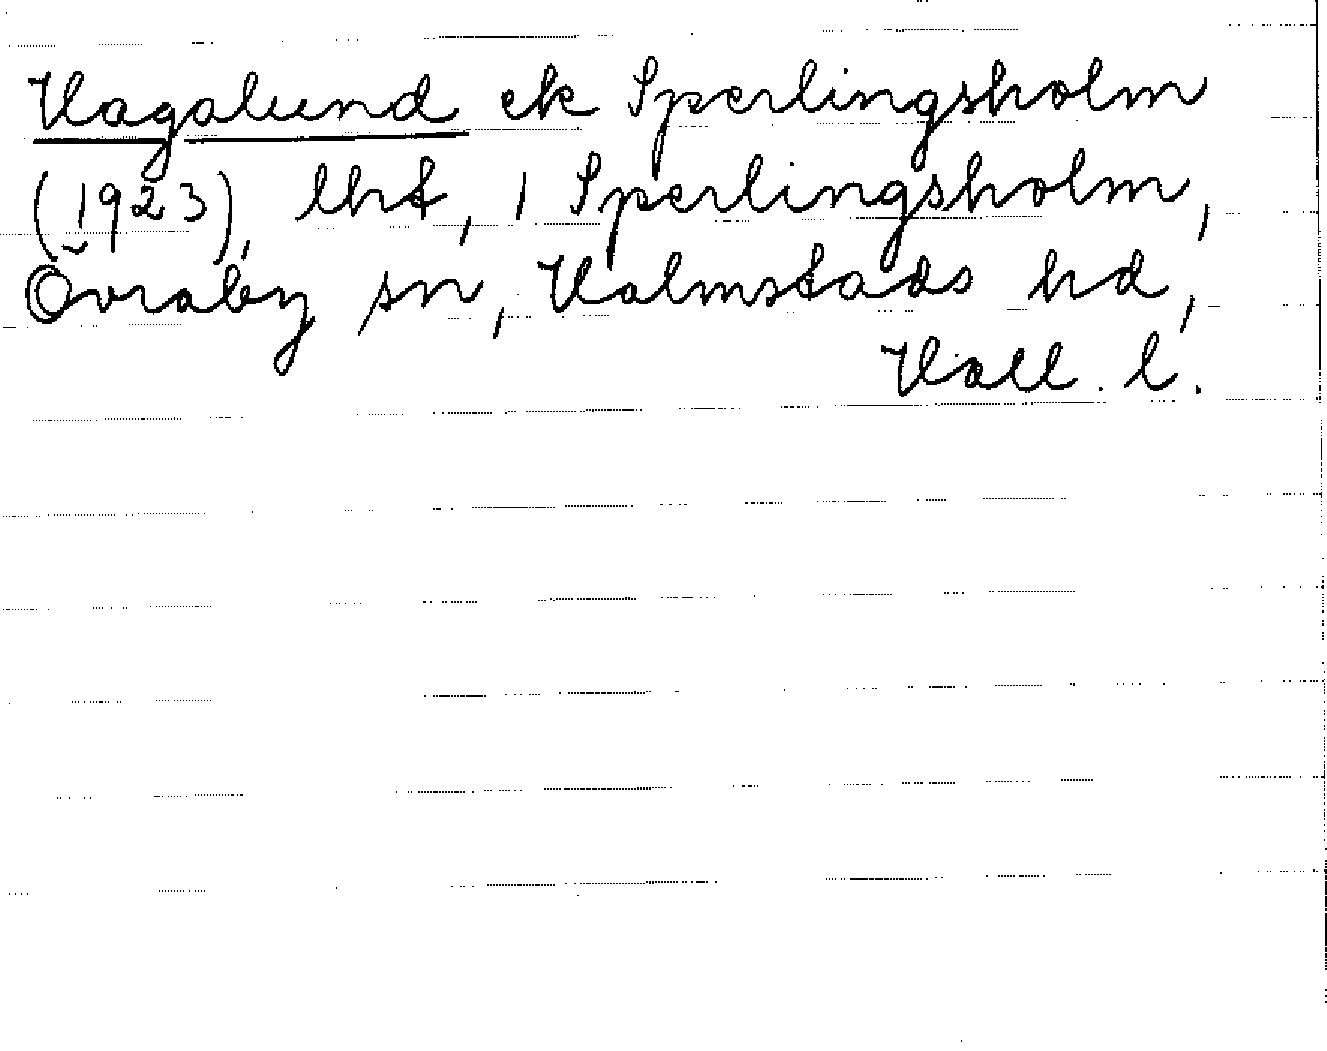 Hagalund ek Sperlingsholm
(1923), lht, 1 Sperlingsholm,
Övraby sn, Halmstads hd,
Hall. l.